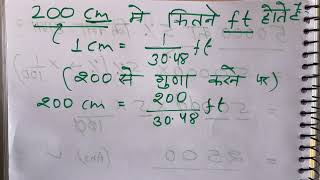 200 cm में कितने ft होते हैं
1 cm = 1/30.48 ft
(200 से गुणा करने पर)
200 cm = 200/30.48 ft